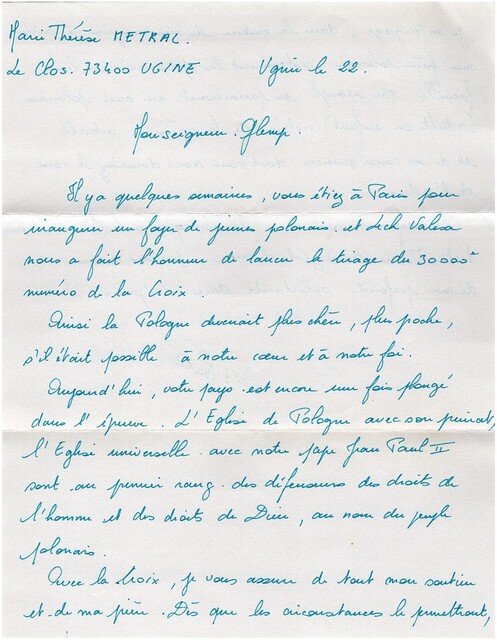 Marie Thérèse METRAL.
Le Clos. 73400 UGINE Ugine le 22.
Monseigneur Glemp.
Il y a quelques semaines, vous étiez à Paris pour
inaugurer un foyer de jeunes polonais. et Lech Valesa
nous a fait l'honneur de lancer le tirage du 30000è
numéro de la Croix.
Ainsi la Pologne devenait plus chère, plus poche,
s'il était possible à notre cœur et à notre foi.
Aujourd'hui, votre pays est encore une fois plongé
dans l'épreuve. L'Eglise de Pologne avec son primat,
l'Eglise universelle. avec notre pape Jean Paul II
sont au premier rang des défenseurs des droits de
l'homme et des droits de Dieu, au nom du peuple
polonais.
Avec la Croix, je vous assure de tout mon soutien
et de ma prière. Dès que les circonstances le permettront,